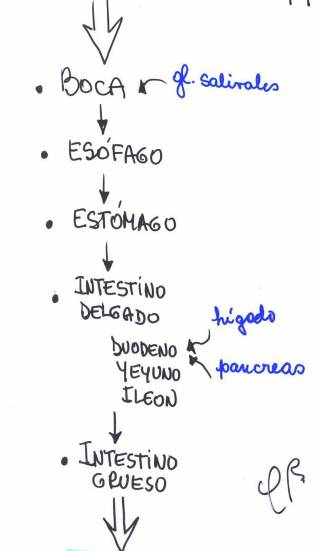 BOCA gl. salivales
ESÓFAGO
ESTÓMAGO
INTESTINO
DELGADO
hígado
DUODENO
YEYUNO pancreas
ILEON
INTESTINO
GRUESO